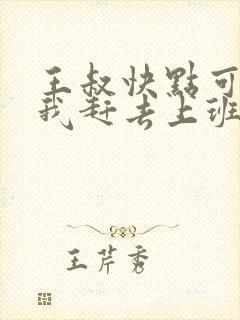 王叔快點可
我赶去上班
王芹秀